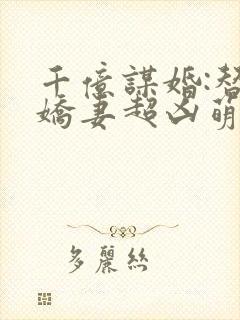 千億謀婚:替
嬌妻超凶萌
多麗絲